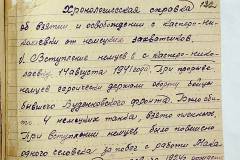 132
Хронологическая справка
об взятии и освобождении с Касперо-Нико-
лаевки от немецких захватчиков.
1. Вступление немцев в с Касперо-Нико-
лаевку 14 августа 1941 года. При прорыве
немцев героически держали оборону бойцы
бывшего Буденовского фронта. Было сби-
то 4 немецких танка, взято пленных,
При вступлении немцев было повешено
одного человека за побег с работы